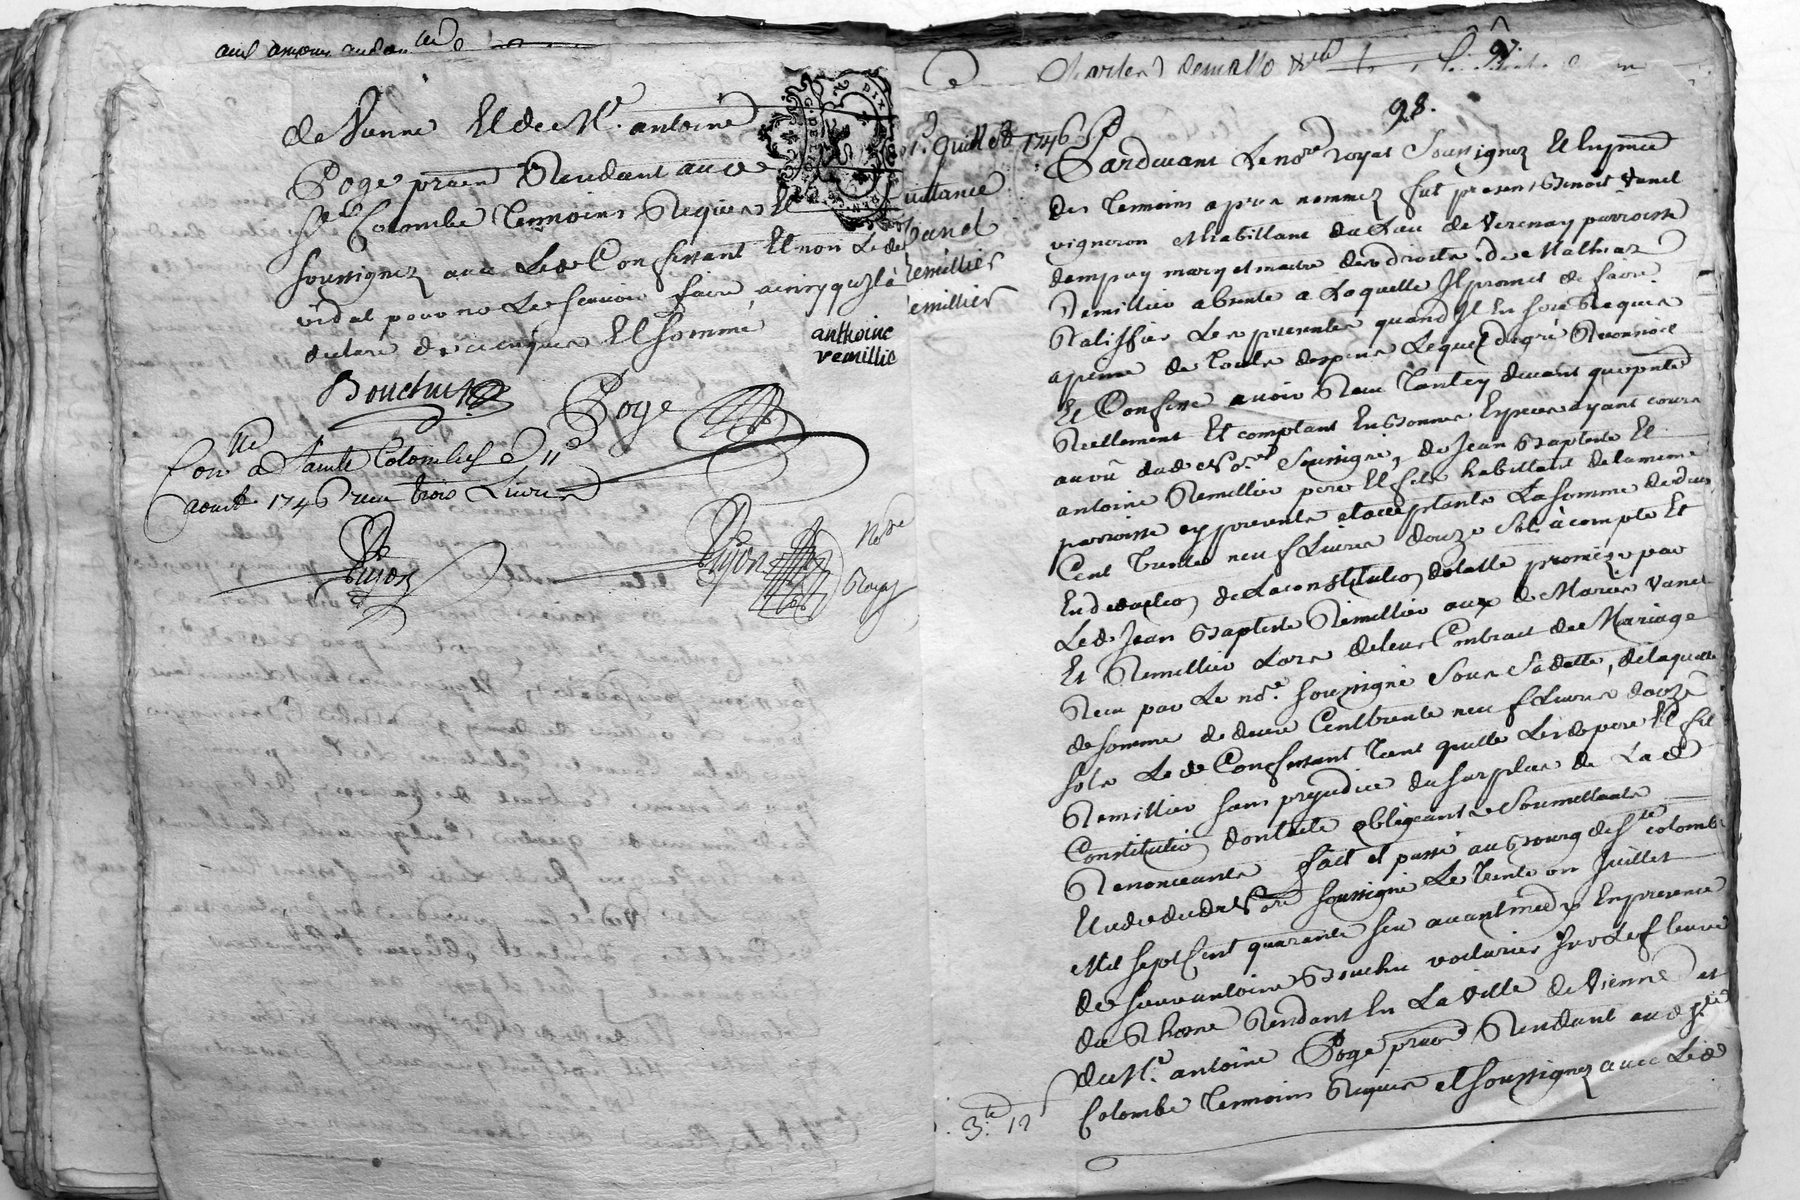 de Vienne Et de Mr. antoine
Poge pruen Residant aud
Ste Colombe Temoins Requis Et
soussignez avec Led Confessant Et non Led
vidal pour ne Le scavoir faire, ainsy quil a
declaré de ce enquis Et sommé
anthoine
remillie
Bouchut
Poge
Conlle a Sainte Colombe le 11e
aoust 1746 reçu trois Livres
Dujon
Dujon Nore
Royal
31e. Juillet 1746
quittance
Vanel
Remillier
Remillier
98.
Pardevant Le nore royal Soussignez Et En pnce
des temoins apres nommez fut present Benoit Vanel
vigneron et habillant du Lau de Verenay parroisse
dempuy mary et maitre des droits de Mathiaz
Remillier absente a Laquelle Il promet de faire
Ratiffier Les presentes quand Il En sera Requis
a peine de touts despens Lequel de gré Reconnoit
Et Confesse avoir Reçu tant cy devant que pntte
Reellement Et comptant En Bonnes Especes ayant cours
au vû dud Nore. Soussigné, de Jean Baptiste Et
antoine Remillier pere Et fils habillant de la meme
parroisse cy presents et acceptants La somme de deux
Cent trente neuf Livres douze sols à compte Et
En deduction de La constitution dotalle promise par
Led Jean Baptiste Remillier aux d Mariés Vanel
Et Remillier Lors de leur Contract de Mariage
Reçu par Le nore. soussigné Sous Sa datte, de laquelle
de somme de deux Cent trente neuf Livres douze
sols Led Confessant tient quitte Lesd pere Et fils
Remillier sans prejudice du surplus de Lad
Constitution dont acte obligeants Soumettants
Renonceants fait et passé au Bourg de Ste colombe
Etude dud Nore soussigné Le trente un Juillet
Mil sept Cent quarante six avant midy En presence
de sieur antoine Bouchu voiturier sur Le fleuve
du Rhone Residant En La Ville de Vienne et
de Mr. antoine Poge pruen Residant aud Ste
Colombe temoins Requis et soussignez avec Led
3.te 12